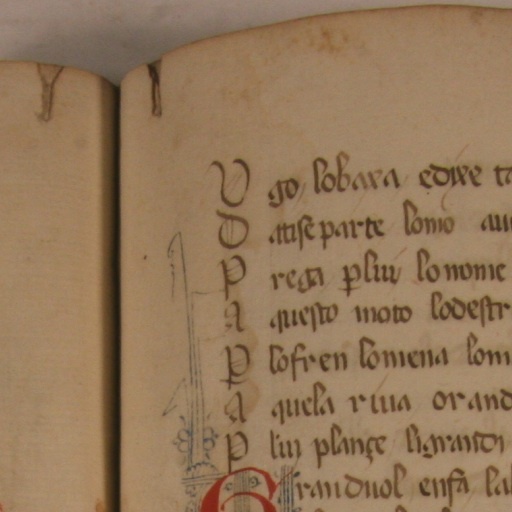 V go lobara edixe
D atise parte lomo
P rega p lui lo nome
A questo moto lodestr
P lofren lo mena lom
A quela riua orand
P lui plançe si grandi
G randuol enfa la